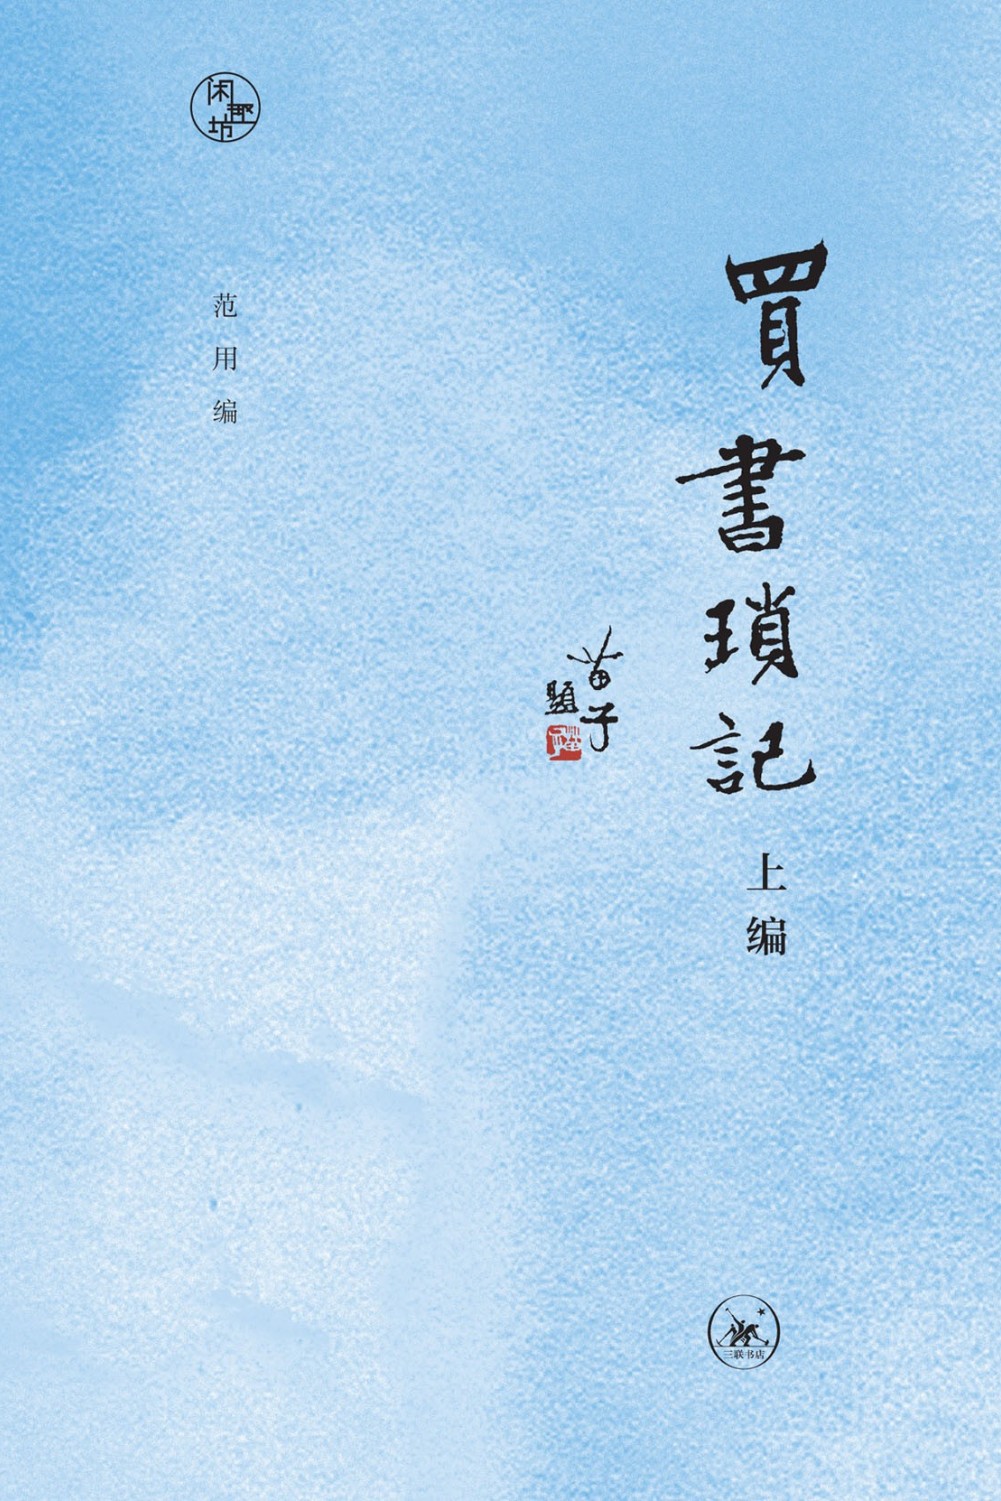 買書瑣記
上编
苗子
題
范用编
闲趣坊
三联书店